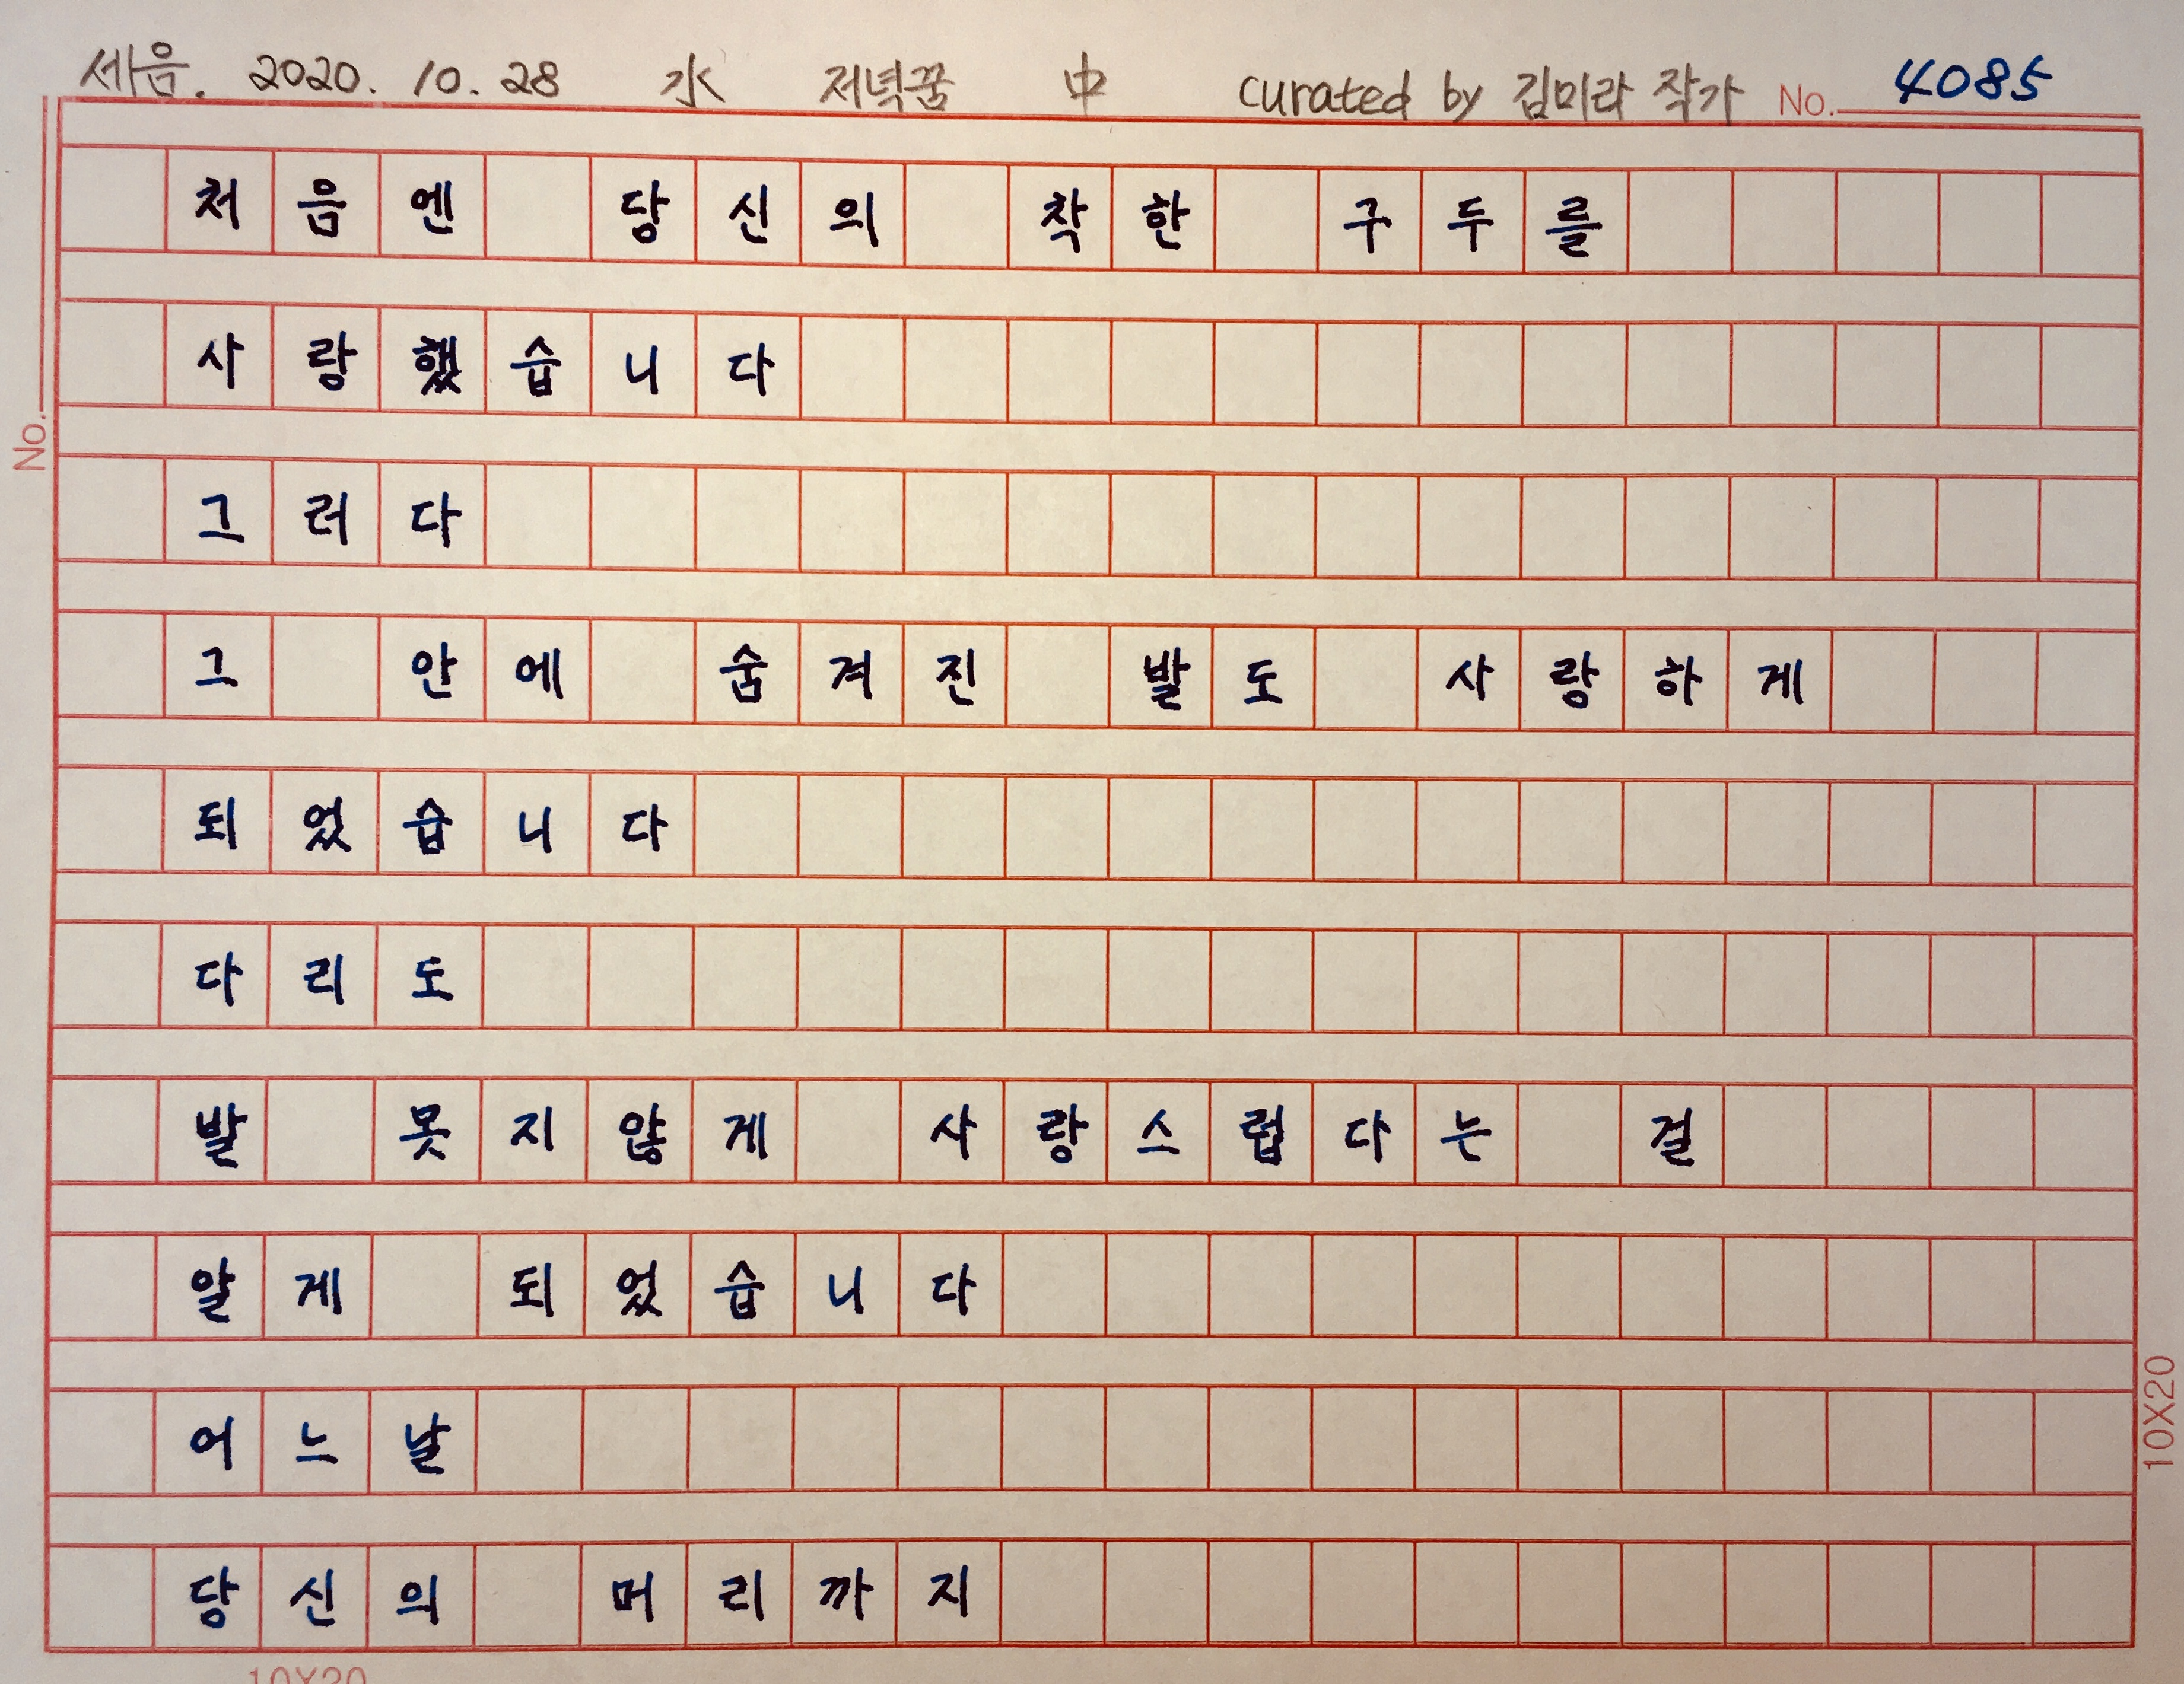 세음. 2020. 10. 28 水 저녁꿈 中 curated by 김미라 작가 No. 4085
처음엔 당신의 착한 구두를
사랑했습니다
No.
그러다
그 안에 숨겨진 발도 사랑하게
되었습니다
다리도
발 못지않게 사랑스럽다는 걸
알게 되었습니다
어느날
10X20
당신의 머리까지
10X20